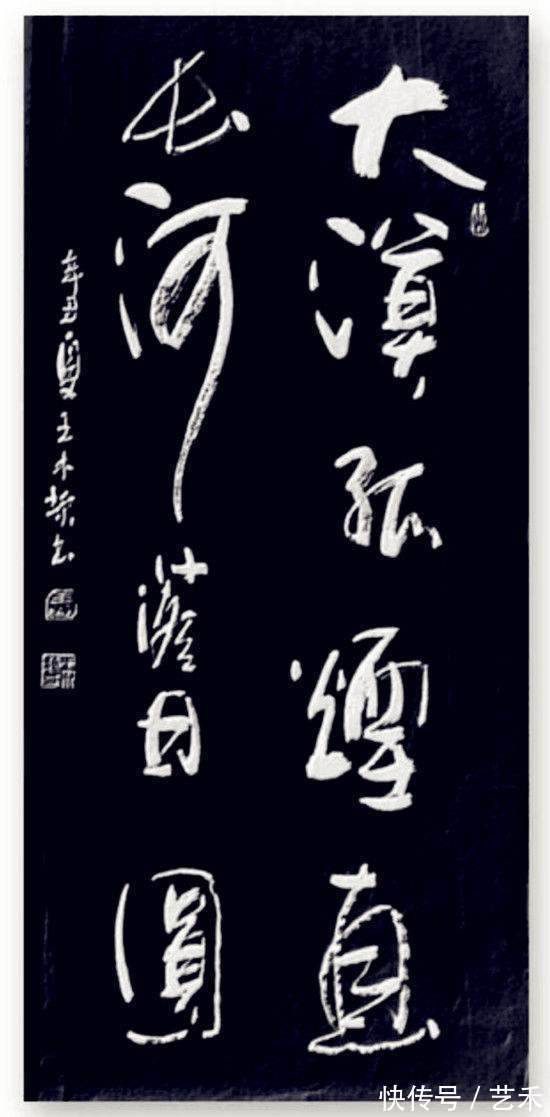 大漠孤煙直
長河落日圓
辛丑夏王木书
快传号 / 艺禾